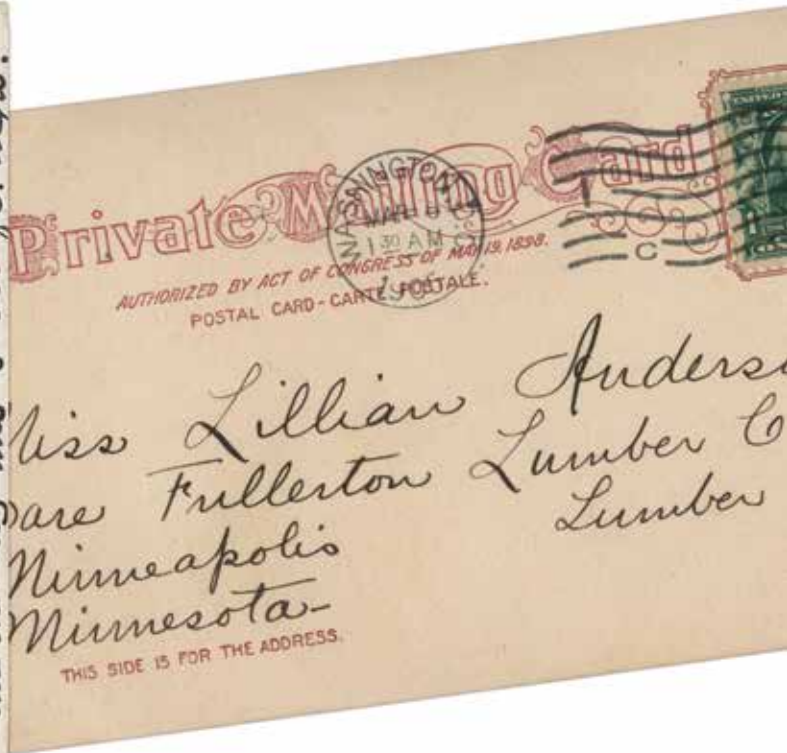 Private Mailing Card
AUTHORIZED BY ACT OF CONGRESS OF MAY 19, 1898.
POSTAL CARD - CARTE POSTALE.
WASHINGTON
1 30 AM
C
Miss Lillian Anders
Care Fullerton Lumber C
Lumber
Minneapolis
Minnesota-
THIS SIDE IS FOR THE ADDRESS.